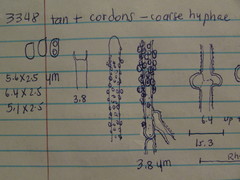 3348 tan + cordons - coarse hyphae
5.6 x 2.5 µm
6.4 x 2.5
5.1 x 2.5
3.8
3.8 µm
6.4 up
15.3
Rh